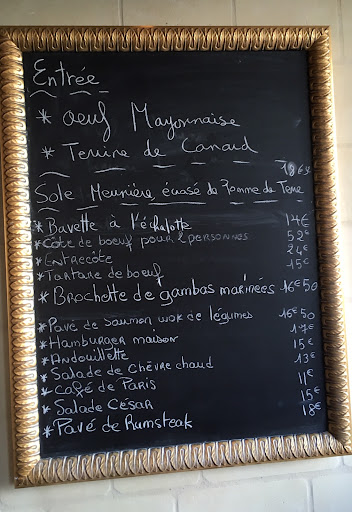 Entrée
* oeuf Mayonnaise
* Terrine de Canard
Sole Meunière, écrasé de Pomme de Terre
* Bavette à l'échalotte 14€
* Côte de boeuf pour 2 personnes 52€
* Entrecôte 24€
* Tartare de boeuf 15€
* Brochette de gambas marinées 16€50
* Pavé de Saumon wok de légumes 16€50
* Hamburger maison 17€
* Andouillette 15€
* Salade de Chèvre chaud 13€
* Café de Paris 11€
* Salade César 15€
* Pavé de Rumsteak 18€